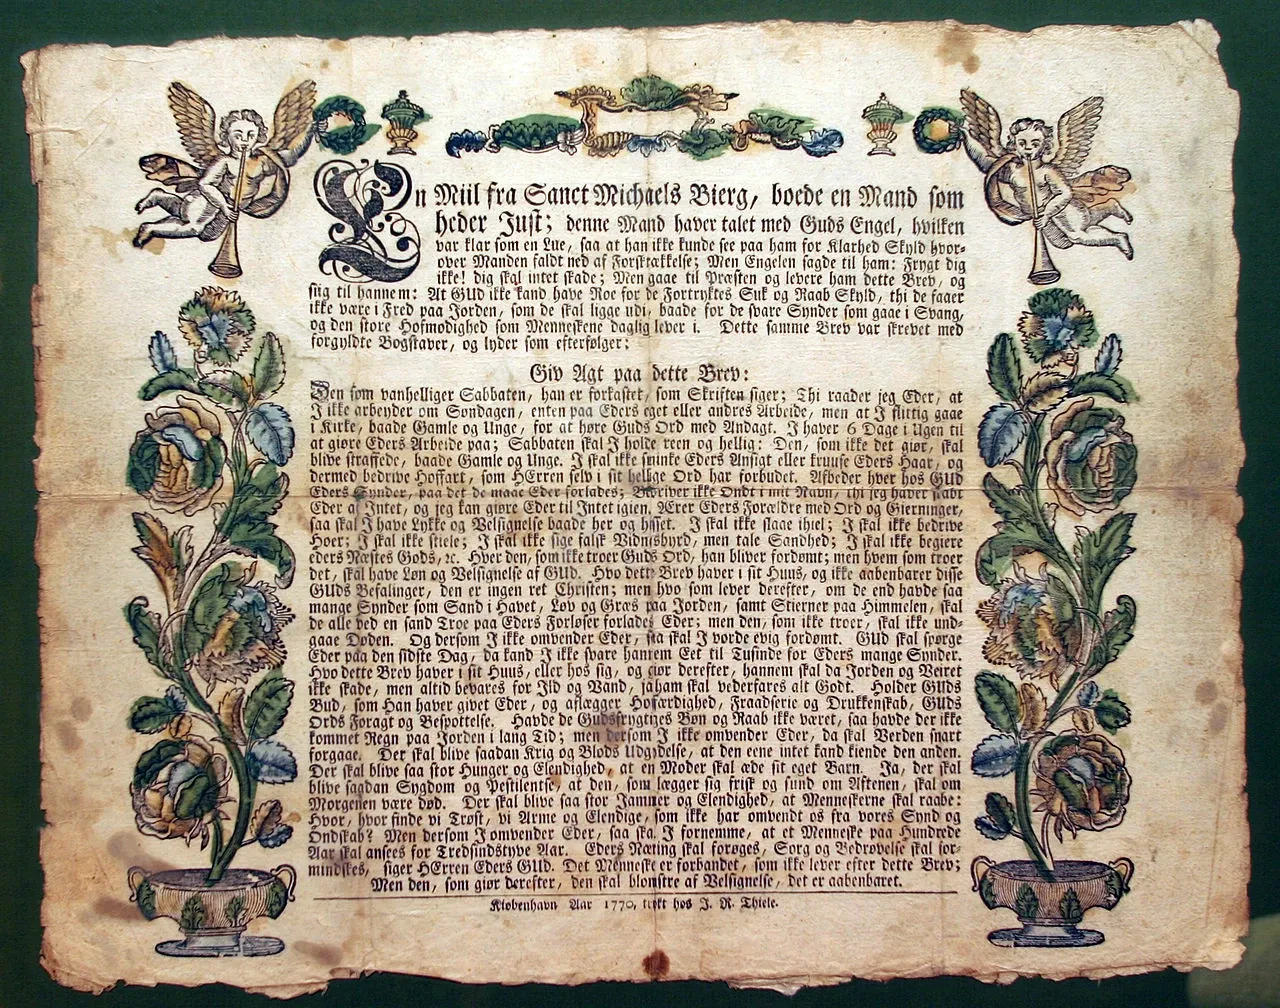 En Miil fra Sanct Michaels Bierg, boede en Mand som
heder Just; denne Mand haver talet med Guds Engel, hvilken
var klar som en Lue, saa at han ikke kunde see paa ham for Klarhed Skyld hvor-
over Manden faldt ned af Forskrækkelse; Men Engelen sagde til ham: Frygt dig
ikke! dig skal intet skade; Men gaae til Præsten og levere ham dette Brev, og
siig til hannem: At GUD ikke kand have Roe for de Fortryktes Suk og Raab Skyld, thi de faaer
ikke være i Fred paa Jorden, som de skal ligge udi, baade for de svare Synder som gaae i Svang,
og den store Hofmodighed som Menneskene daglig lever i. Dette samme Brev var skrevet med
forgyldte Bogstaver, og lyder som efterfølger:
Giv Agt paa dette Brev:
Den som vanhelliger Sabbaten, han er forkastet, som Skriften siger; Thi raader jeg Eder, at
I ikke arbeyder om Søndagen, enten paa Eders eget eller andres Arbeide, men at I flittig gaae
i Kirke, baade Gamle og Unge, for at høre Guds Ord med Andagt. I haver 6 Dage i Ugen til
at giøre Eders Arbeide paa; Sabbaten skal I holde reen og hellig: Den, som ikke det giør, skal
blive straffede, baade Gamle og Unge. I skal ikke sminke Eders Ansigt eller kruuse Eders Haar, og
dermed bedrive Hoffart, som HErren selv i sit hellige Ord har forbudet. Afbeder hver hos GUD
Eders Synder, paa det de maae Eder forlades; Bedriver ikke Ondt i mit Navn, thi jeg haver skabt
Eder af Intet, og jeg kan giøre Eder til Intet igien. Ærer Eders Forældre med Ord og Gierninger,
saa skal I have Lykke og Velsignelse baade her og hisset. I skal ikke slaae ihiel; I skal ikke bedrive
Hoer; I skal ikke stiele; I skal ikke sige falsk Vidnisbyrd, men tale Sandhed; I skal ikke begiere
eders Næstes Gods, ꝛc. Hver den, som ikke troer Guds Ord, han bliver fordømt; men hvem som troer
det, skal have Løn og Velsignelse af GUD. Hvo dette Brev haver i sit Huus, og ikke aabenbarer disse
GUds Befalinger, den er ingen ret Christen; men hvo som lever derefter, om de end havde saa
mange Synder som Sand i Havet, Løv og Græs paa Jorden, samt Stierner paa Himmelen, skal
de alle ved en sand Troe paa Eders Forløser forlades Eder; men den, som ikke troer, skal ikke und-
gaae Døden. Og dersom I ikke omvender Eder, saa skal I vorde evig fordømt. GUD skal spørge
Eder paa den sidste Dag, da kand I ikke svare hannem Eet til Tusinde for Eders mange Synder.
Hvo dette Brev haver i sit Huus, eller hos sig, og giør derefter, hannem skal da Jorden og Veiret
ikke skade, men altid bevares for Ild og Vand, ja ham skal vederfares alt Godt. Holder GUds
Bud, som Han haver givet Eder, og aflægger Hofærdighed, Fraadserie og Drukkenskab, GUds
Ords Foragt og Bespottelse. Havde de Gudsfrygtiges Bøn og Raab ikke været, saa havde der ikke
kommet Regn paa Jorden i lang Tid; men dersom I ikke omvender Eder, da skal Verden snart
forgaae. Der skal blive saadan Krig og Blods Udgydelse, at den eene intet kand kiende den anden.
Der skal blive saa stor Hunger og Elendighed, at en Moder skal æde sit eget Barn. Ja, der skal
blive saadan Sygdom og Pestilentse, at den, som lægger sig frisk og sund om Aftenen, skal om
Morgenen være død. Der skal blive saa stor Jammer og Elendighed, at Menneskerne skal raabe:
Hvor, hvor finde vi Trøst, vi Arme og Elendige, som ikke har omvendt os fra vores Synd og
Ondskab? Men dersom I omvender Eder, saa skal I fornemme, at et Menneske paa Hundrede
Aar skal ansees for Tredsindstyve Aar. Eders Næring skal forøges, Sorg og Bedrøvelse skal for-
mindskes, siger HErren Eders GUD. Det Menneske er forbandet, som ikke lever efter dette Brev;
Men den, som giør derefter, den skal blomstre af Velsignelse, det er aabenbaret.
Kiøbenhavn Aar 1770, trykt hos J. R. Thiele.